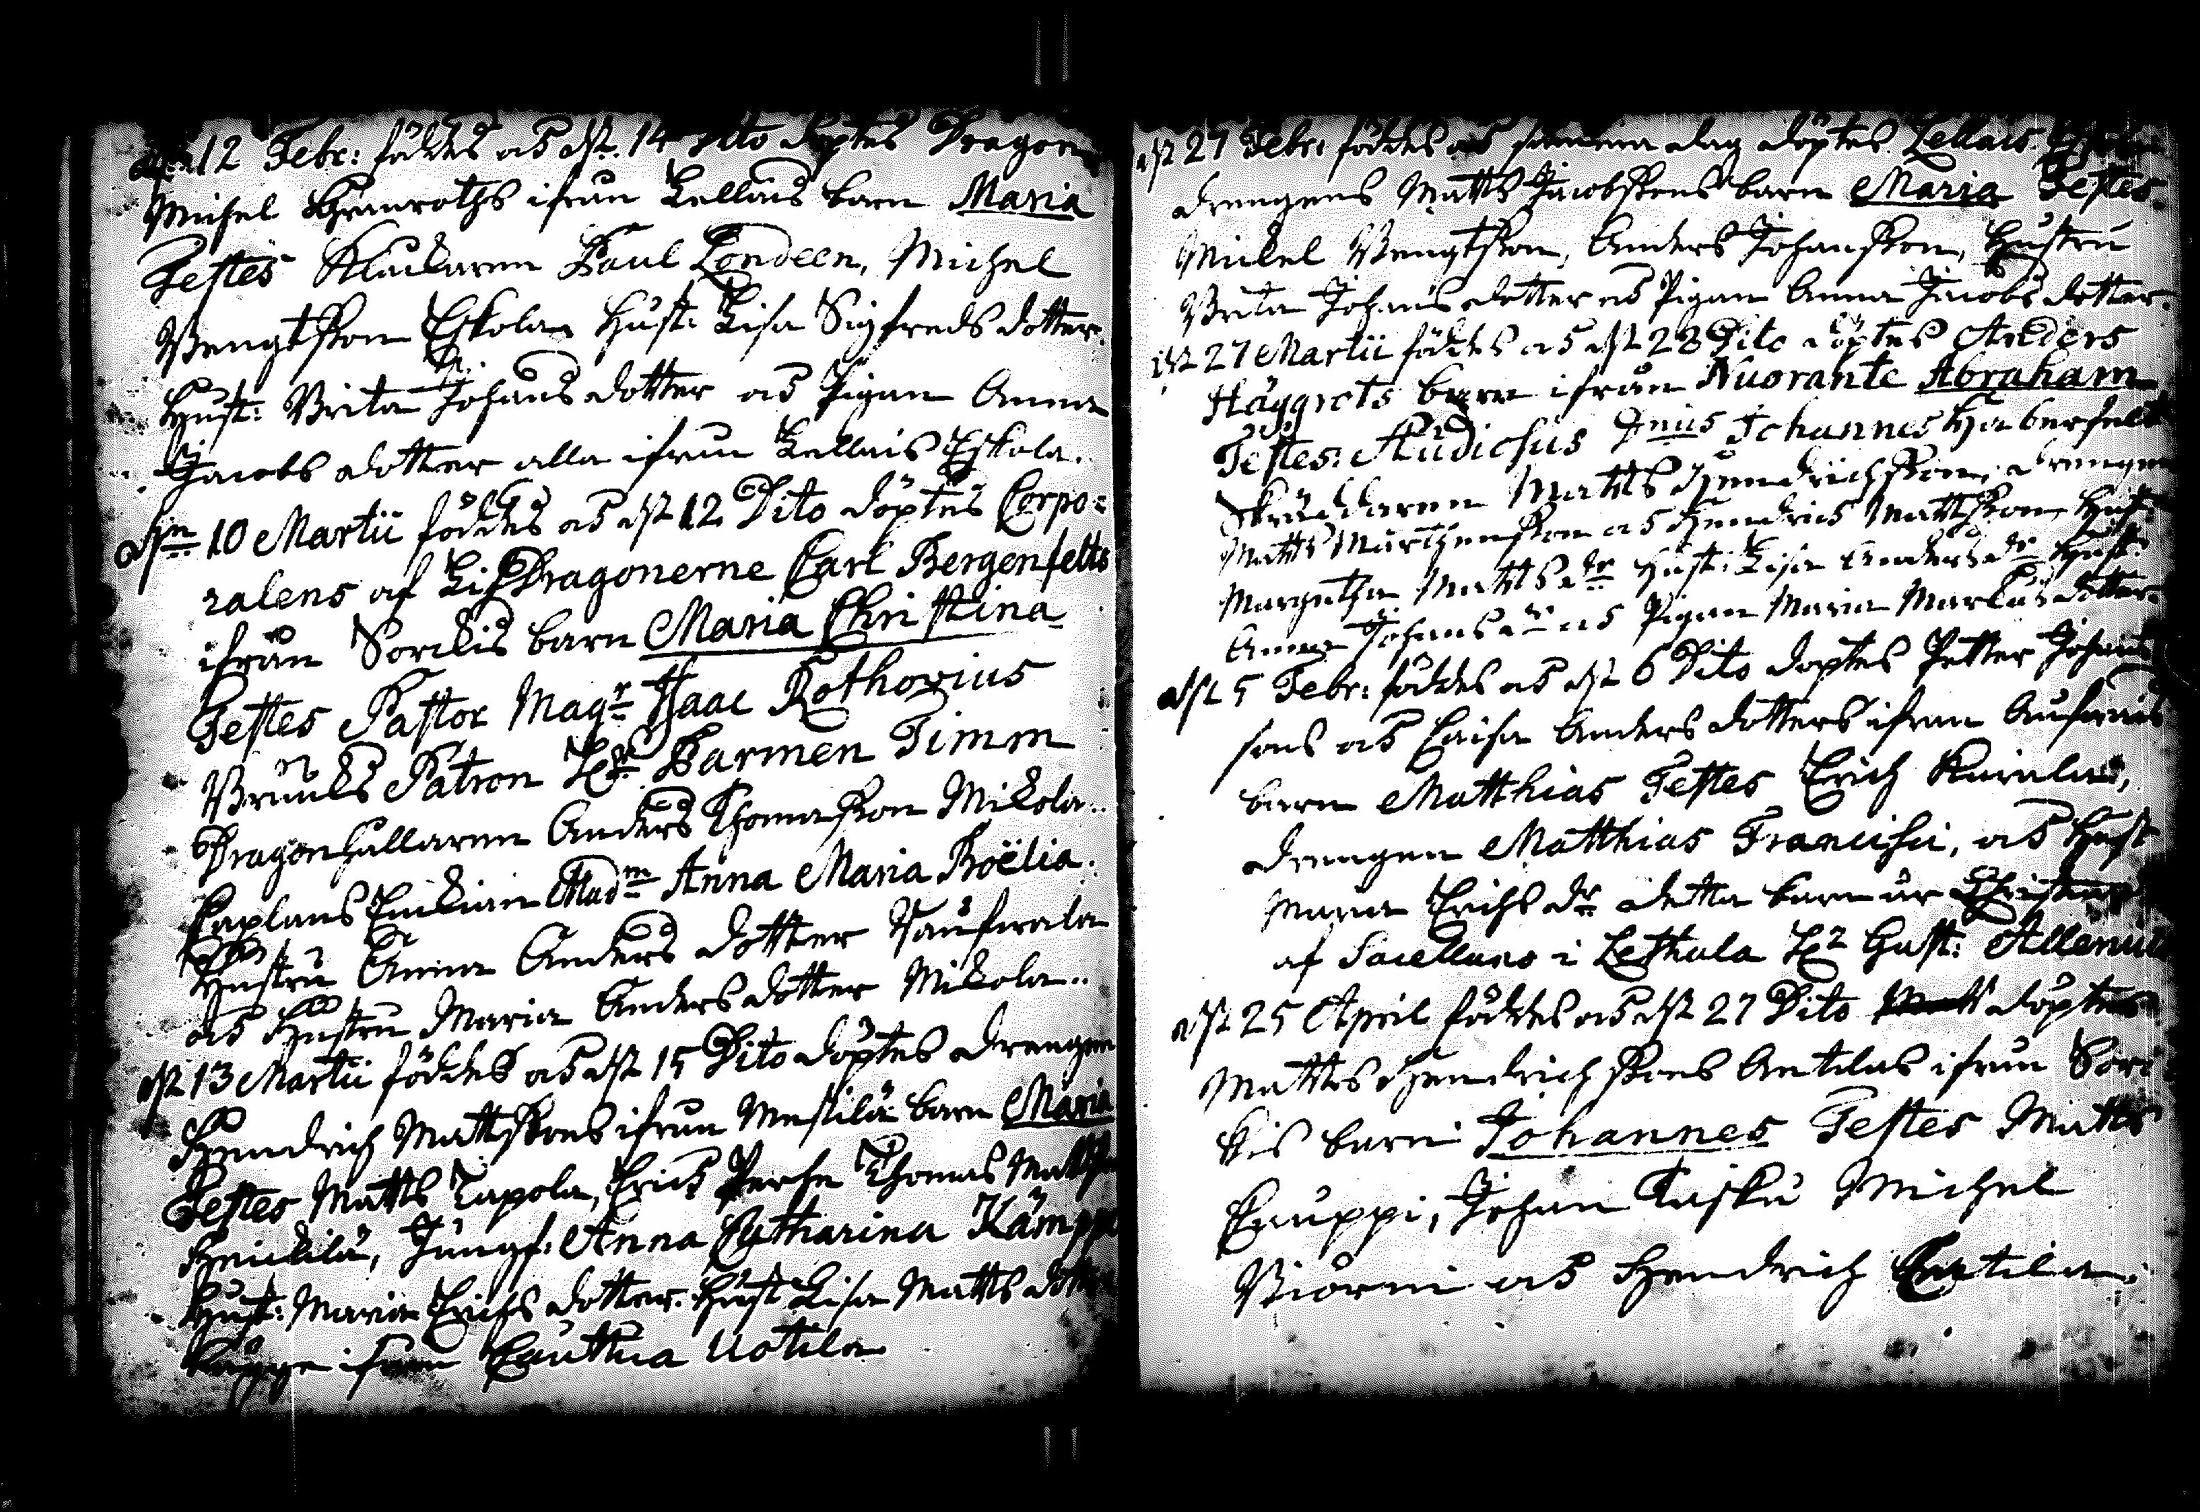 12 Febr: föddes och dn 14 Dito döptes Dragon
Michel ifrån Kellais barn Maria
Testes Kluckaren Paul Londeen, Michel
Bengtsson Eskola Hust: Lisa Sigfreds dotter
Hust: Brita Johans dotter och Pigan Anna
Jacobs dotter alla ifrån Kellais Eskola.
dn 10 Martii föddes och dn 12 Dito döptes Corpo=
ralens af Lif Dragonerne Carl Bergenfelts
ifrån Sorckis barn Maria Christina
Testes Pastor Magr Isaac Rothovius
Bruuks Patron Hr Barmen Timm
Dragonhållaren Anders Thomasson Mikola
Caplans Enckian Madm Anna Maria Boëlia
Hustru Anna Anders dotter
och Hustru Maria Anders dotter Mikola
dn 13 Martii föddes och dn 15 Dito döptes drengen
Hendrich Mattssons ifrån barn Maria
Testes Matts Tapola, Erich Thomas
Heickilä, Jungf: Anna Catharina Kämppe
Hust: Maria Erichs dotter. Hust Lisa Matts dotter
ifrån Cauttua Uotila
dn 27 Febr: föddes och samma dag döptes Kellais
drengens Matts Jacobssons barn Maria Testes
Mickel Bengtsson, Anders Johansson, Hustru
Brita Johans dotter och Pigan Anna Jacobs dotter.
dn 27 Martii föddes och dn 28 Dito döptes Anders
Häggrots barn ifrån Nuorante Abraham
Testes: Studiosus Dnus Johannes Haberfelt
Skräddaren Matts Hendrichsson, drengen
Matts Mårthensson och Hendrich Mattsson, Hust:
Margetha Matts dr Hust: Lisa Anders dr Hust:
Anna Johans dr och Pigan Maria Markus dotter
dn 5 Febr: föddes och dn 6 Dito döptes Petter Johans
sons och Caisa Anders dotters ifrån
barn Matthias Testes Erich
drengen Matthias Francisci, och Hust
Maria Erichs dr detta barn är Christnat
af Sacellano i Lethala Hr Gust: Allenius
dn 25 April föddes och dn 27 Dito döptes
Matts Hendrichssons Antilas ifrån Sorc
kis barn Johannes Testes Matts
Cauppi, Johan Tasku Michel
Biörni och Hendrich